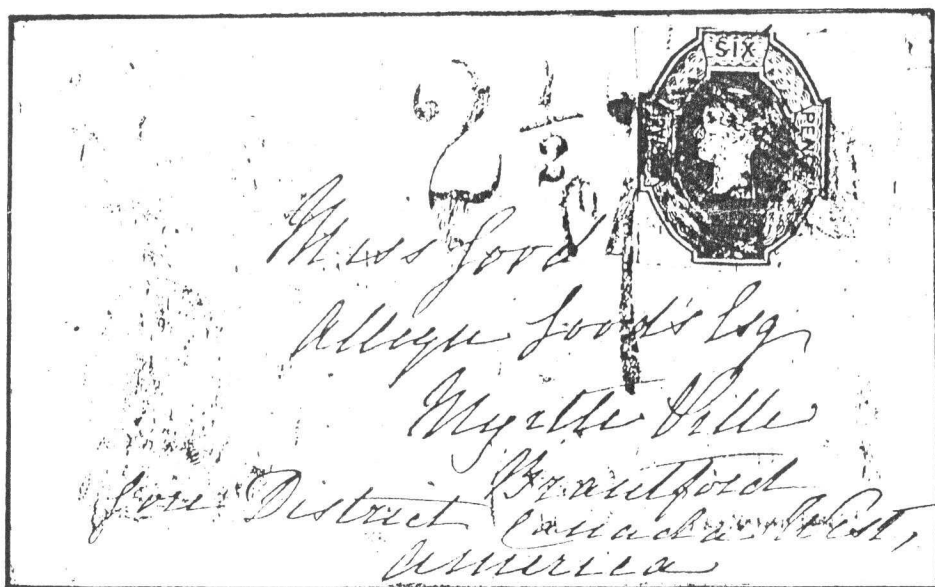 SIX
PENCE
2 1/2
Miss Good
Alleyn Good's Esq
Myrtle Ville
Brantford
Gore District Canada West,
America